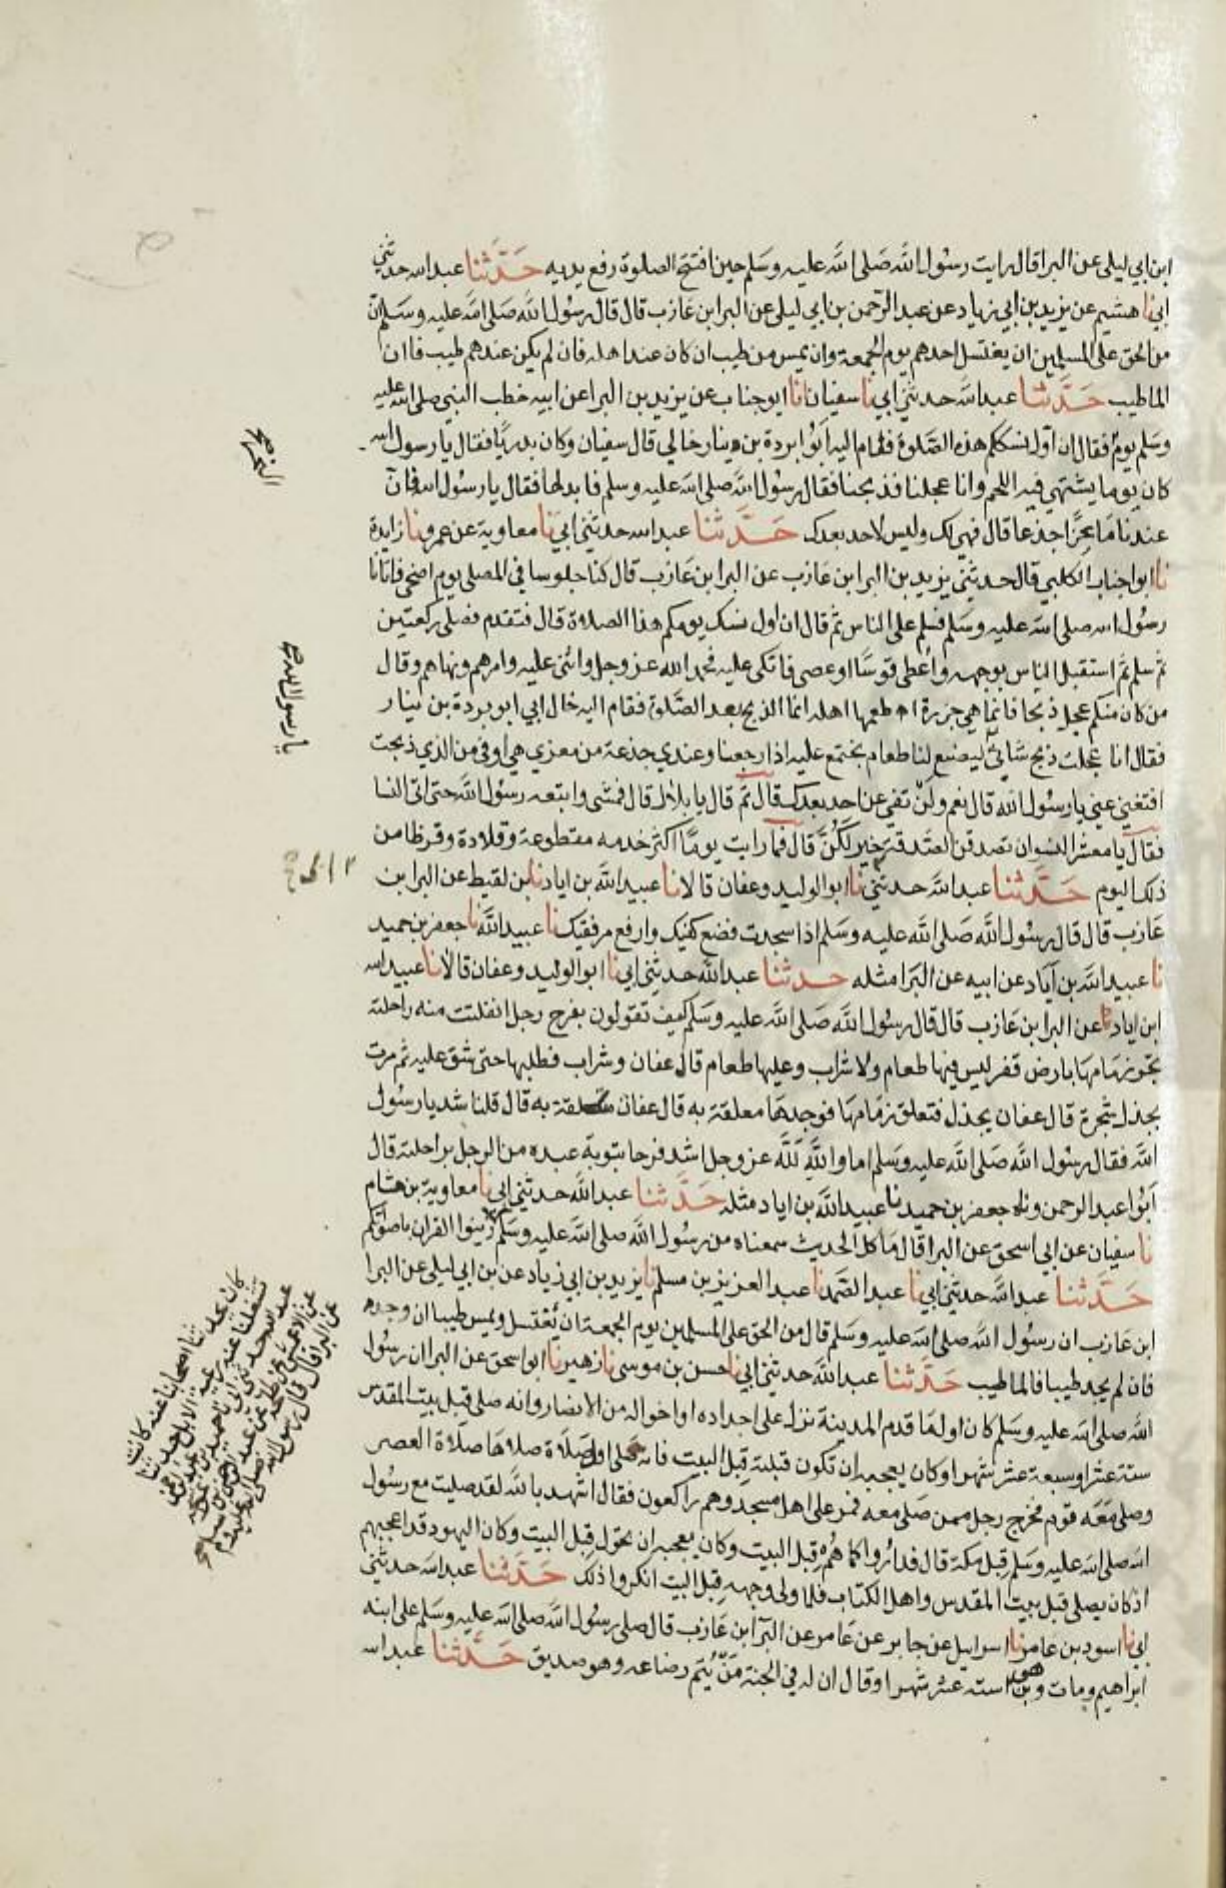 ابن ابي ليلى عن البرا قال رايت رسول الله صلى الله عليه وسلم حين افتتح الصلوة رفع يديه حدثنا عبد الله حدثني
ابي نا هشيم عن يزيد بن ابي زياد عن عبد الرحمن بن ابي ليلى عن البرا بن عازب قال قال رسول الله صلى الله عليه وسلم ان
من الحق على المسلمين ان يغتسل احدهم يوم الجمعة وان يمس من طيب ان كان عند اهله فان لم يكن عندهم طيب فان
الماطيب حدثنا عبد الله حدثني ابي نا سفيان نا ابو جناب عن يزيد بن البرا عن ابيه خطب النبي صلى الله عليه
وسلم يوم فقال ان اول نسككم هذه الصلوة فقام اليه ابو بردة بن دينار خالي قال سفيان وكان بدريا فقال يا رسول الله
كان يوما يشتهى فيه اللحم وانا عجلنا فذبحنا فقال رسول الله صلى الله عليه وسلم فابدلها فقال يا رسول الله فان
عندنا ماعزا جذعا قال فهي لك وليس لاحد بعدك حدثنا عبد الله حدثني ابي نا معاوية عن عمرو نا زايدة
نا ابو جناب الكلبي قال حدثني يزيد بن البرا ابن عازب عن البرا ابن عازب قال كنا جلوسا في المصلى يوم اضحى فاتانا
رسول الله صلى الله عليه وسلم فسلم على الناس ثم قال ان اول نسك يومكم هذا الصلاة قال فتقدم فصلى ركعتين
ثم سلم ثم استقبل الناس بوجهه واعطى قوسا او عصى فاتكى عليه فحمد الله عز وجل واثنى عليه وامرهم ونهاهم وقال
من كان منكم عجل ذبحا فانما هي جزرة اطعمها اهله انما الذبح بعد الصلوة فقام اليه خال ابي ابو بردة بن نيار
فقال انا عجلت ذبح شاتي ليصنع لنا طعام نجتمع عليه اذا رجعنا وعندي جذعة من معزي هي اوفى من الذي ذبحت
افتغني عني يا رسول الله قال نعم ولن تفي عن احد بعدك قال ثم قال يا بلال قال فمشى واتبعه رسول الله حتى اتى النسا
فقال يا معشر النسوان تصدقن الصدقة خير لكن قال فما رايت يوما اكثر خدمه مقطوعة وقلادة وقرطا من
ذلك اليوم حدثنا عبد الله حدثني نا ابو الوليد وعفان قالا نا عبيد الله بن اياد نا بن لقيط عن البرا بن
عازب قال قال رسول الله صلى الله عليه وسلم اذا سجدت فضع كفيك وارفع مرفقيك نا عبيد الله نا جعفر بن حميد
نا عبيد الله بن اياد عن ابيه عن البرا مثله حدثنا عبد الله حدثني ابي نا ابو الوليد وعفان قالا نا عبيد الله
ابن اياد نا عن البرا بن عازب قال قال رسول الله صلى الله عليه وسلم كيف تقولون بفرح رجل انفلتت منه راحلته
تجر زمامها بارض قفر ليس فيها طعام ولا شراب وعليها طعام قال عفان وشراب فطلبها حتى شق عليه ثم مرت
بجذل شجرة قال عفان بجذل فتعلق زمامها فوجدها معلقة به قال عفان متعلقة به قال قلنا شديد يا رسول
الله فقال رسول الله صلى الله عليه وسلم اما والله لله عز وجل اشد فرحا بتوبة عبده من الرجل براحلته قال
ابو عبد الرحمن وناه جعفر بن حميد نا عبيد الله بن اياد مثله حدثنا عبد الله حدثني ابي نا معاوية بن هشام
نا سفيان عن ابي اسحق عن البرا قال ما كل الحديث سمعناه من رسول الله صلى الله عليه وسلم زينوا القران باصواتكم
حدثنا عبد الله حدثني ابي نا عبد الصمد نا عبد العزيز بن مسلم نا يزيد بن ابي زياد عن بن ابي ليلى عن البرا
ابن عازب ان رسول الله صلى الله عليه وسلم قال من الحق على المسلمين يوم الجمعة ان يغتسل ويمس طيبا ان وجده
فان لم يجد طيبا فالما طيب حدثنا عبد الله حدثني ابي نا حسن بن موسى نا زهير نا ابو اسحق عن البرا ان رسول
الله صلى الله عليه وسلم كان اول ما قدم المدينة نزل على اجداده او اخواله من الانصار وانه صلى قبل بيت المقدس
ستة عشر او سبعة عشر شهرا وكان يعجبه ان تكون قبلته قبل البيت فانه صلى اول صلاة صلاها صلاة العصر
وصلى معه قوم فخرج رجل ممن صلى معه فمر على اهل مسجد وهم راكعون فقال اشهد بالله لقد صليت مع رسول
الله صلى الله عليه وسلم قبل مكة قال فداروا كما هم قبل البيت وكان يعجبه ان يحول قبل البيت وكان اليهود قد اعجبهم
اذ كان يصلي قبل بيت المقدس واهل الكتاب فلما ولى وجهه قبل البيت انكروا ذلك حدثنا عبد الله حدثني
ابي نا اسود بن عامر نا اسرايل عن جابر عن عامر عن البرا ابن عازب قال صلى رسول الله صلى الله عليه وسلم على ابنه
ابراهيم ومات وهو ابن ستة عشر شهرا وقال ان له في الجنة من يتم رضاعه وهو صديق حدثنا عبد الله
يا رسول الله
كان يحدثنا اصحابنا عنه كانت
تشغلنا عنه رعية الابل